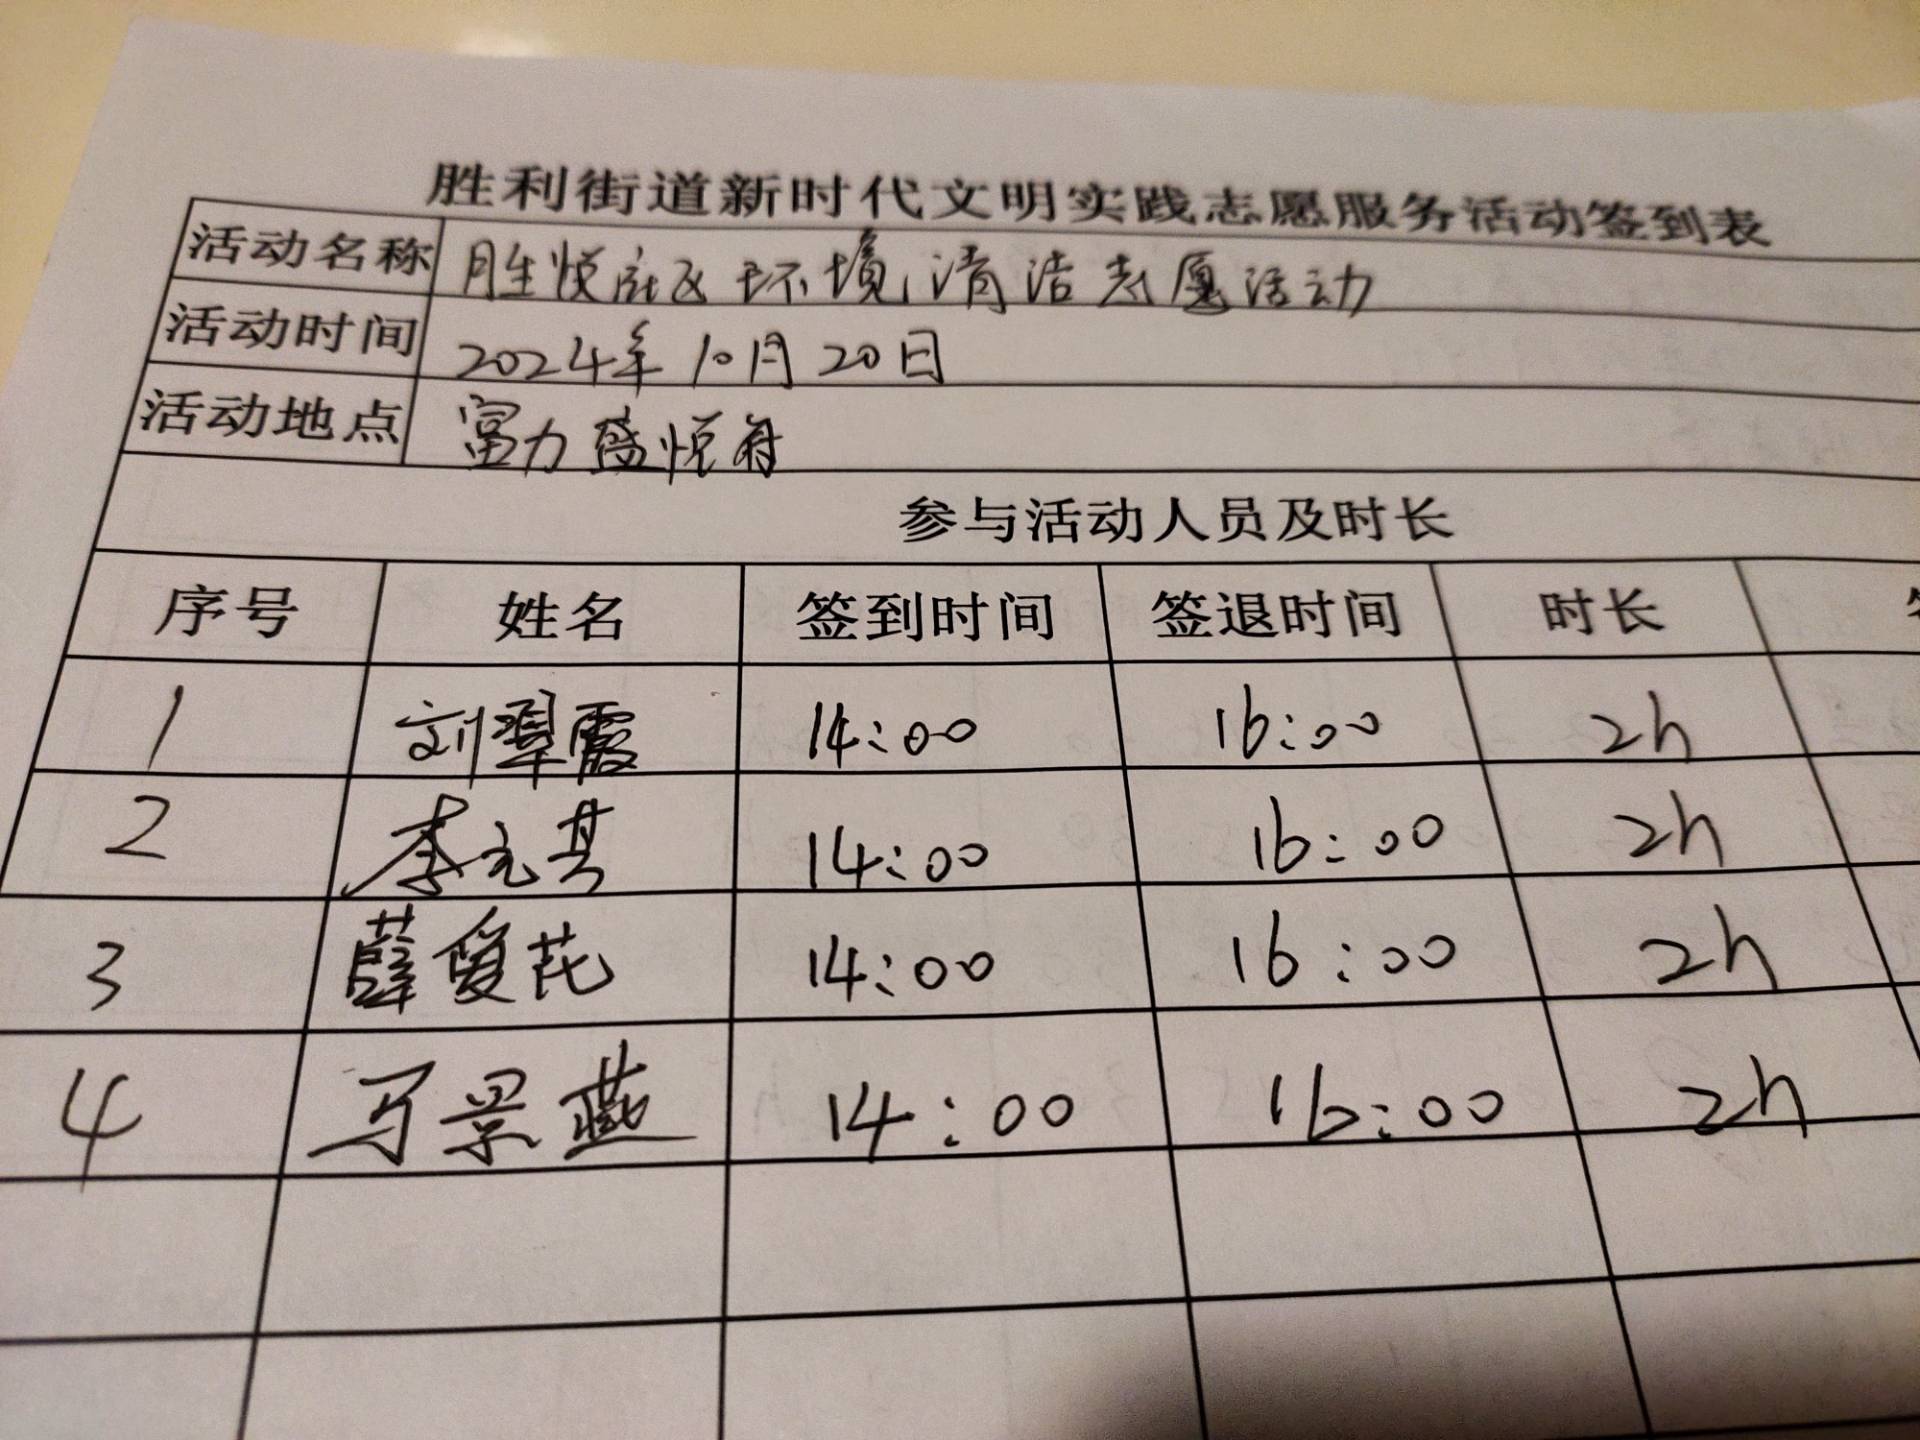 胜利街道新时代文明实践志愿服务活动签到表
活动名称 胜悦府区环境清洁志愿活动
活动时间 2024年10月20日
活动地点 富力盛悦府
参与活动人员及时长
序号 姓名 签到时间 签退时间 时长
1 刘翠霞 14:00 16:00 2h
2 李元其 14:00 16:00 2h
3 薛爱花 14:00 16:00 2h
4 马景燕 14:00 16:00 2h